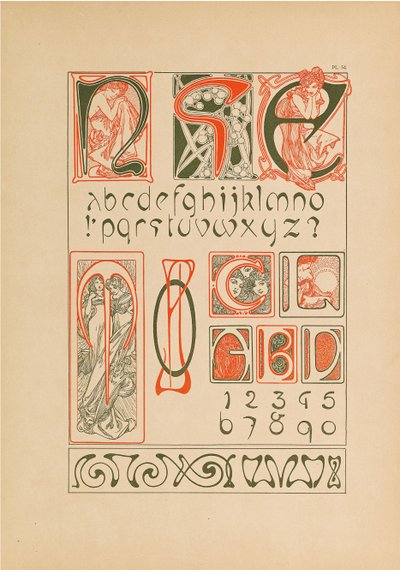 PL.
n s e
abcdefghijklmno
!'pqrstuvwxyz?
M O C L
A B D
1 2 3 4 5
6 7 8 9 0